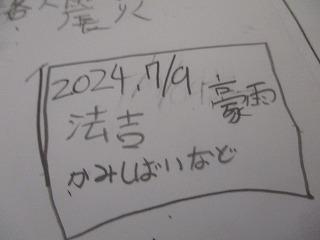 2024.7/9 豪雨
法吉
かみしばいなど